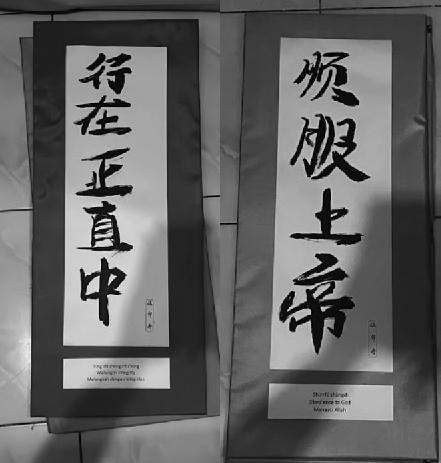 行在正直中
Walking in integrity
Melangkah dengan integritas
顺服上帝
Shùnfú shàngdì
Obedience to God
Menaati Allah